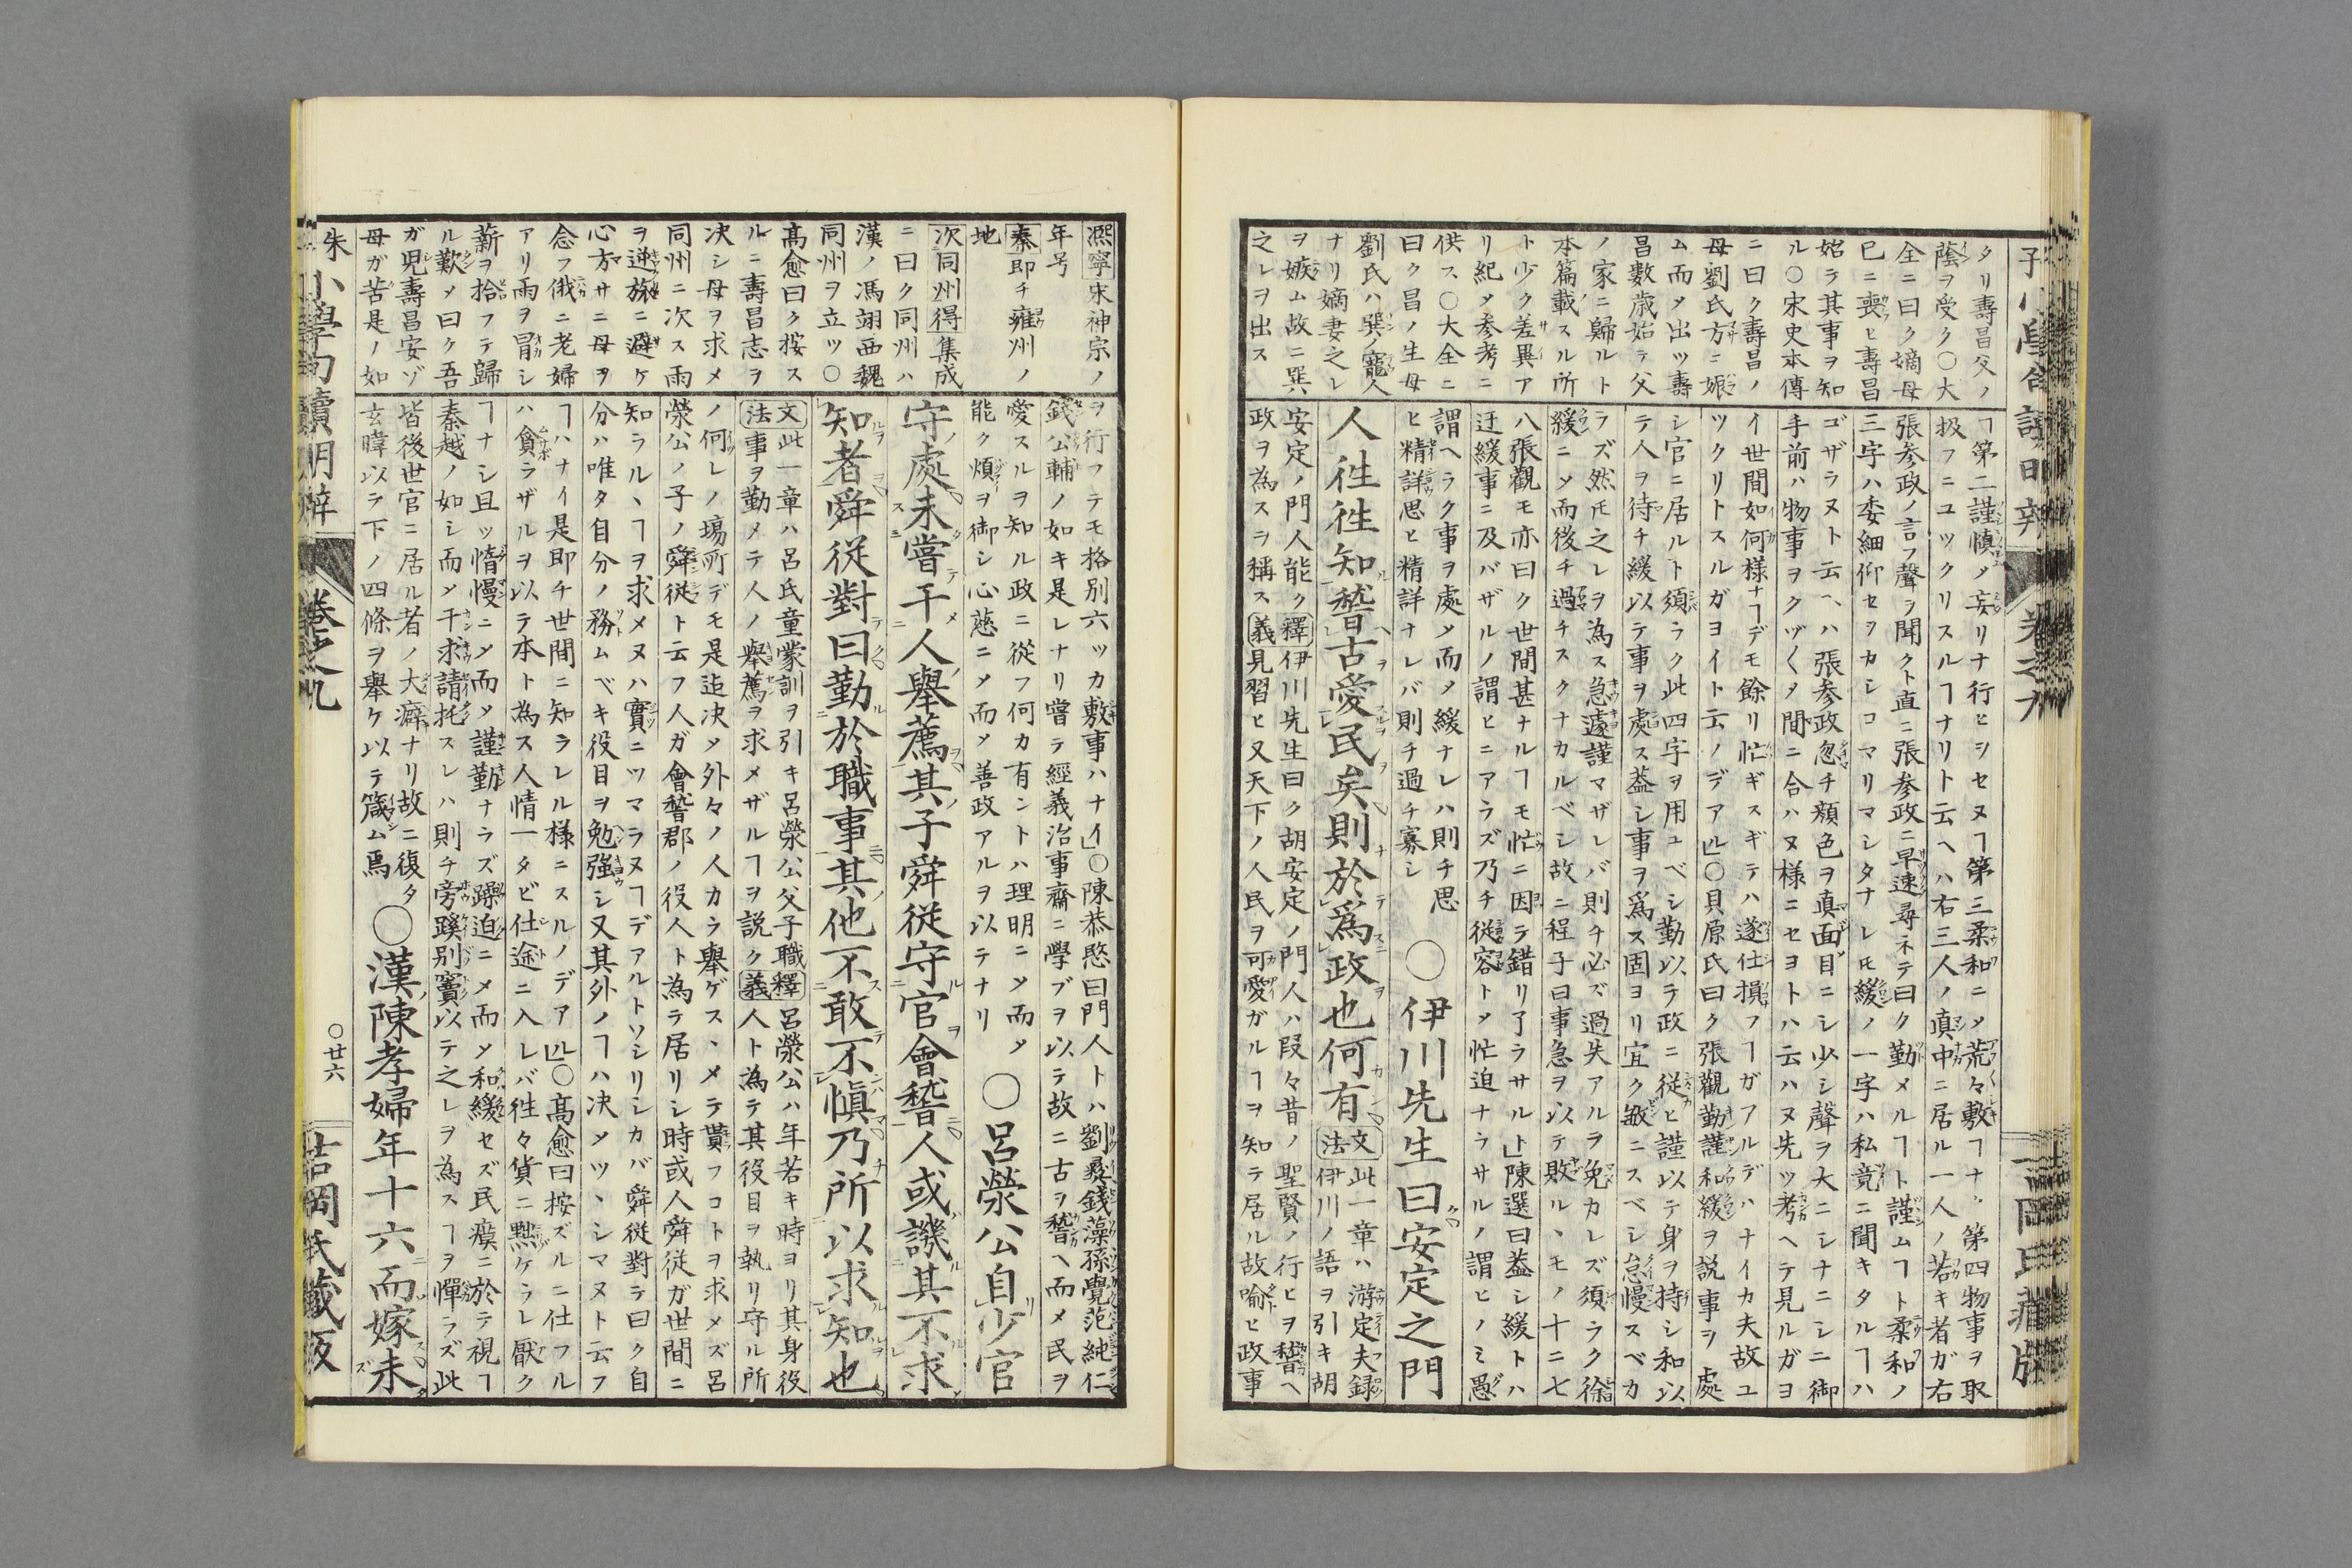 タリ壽昌父ノ
蔭ヲ受ク○大
全ニ曰ク嫡母
巳ニ喪ヒ壽昌
始ラ其事ヲ知
ル○宋史本傳
ニ曰ク壽昌ノ
母劉氏方ニ娠
ム而〆出ツ壽
昌數歳始テ父
ノ家ニ歸ルト
本篇載スル所
ト少ク差異ア
リ紀〆参考ニ
供ス○大全ニ
曰ク昌ノ生母
劉氏ハ巽ノ寵人
ナリ嫡妻之レ
ヲ嫉ム故ニ巽
之レヲ出ス
ヿ第二謹慎〆妄リナ行ヒヲセヌヿ第三柔和ニ〆荒々敷ヿナ、第四物事ヲ取
扱フニユツクリスルヿナリト云ヘハ右三人ノ真中ニ居ル一人ノ若キ者ガ右
張参政ノ言フ聲ヲ聞クト直ニ張参政ニ早速尋ネテ曰ク勤メルヿト謹ムヿト柔和ノ
三字ハ委細仰セヲカシコマリマシタナレ𪜈緩ノ一字ハ私竟ニ聞キタルヿハ
ゴザラヌト云ヘハ張参政忽チ顔色ヲ真面目ニシ少シ聲ヲ大ニシナニシニ御
手前ハ物事ヲクヅ〱〆間ニ合ハヌ様ニセヨトハ云ハヌ先ツ考ヘテ見ルガヨ
イ世間如何様ナヿデモ餘リ忙ギスギテハ遂仕損フヿガアルデハナイカ夫故ユ
ツクリトスルガヨイト云ノデアル」○貝原氏曰ク張觀勤謹和緩ヲ説事ヲ處
シ官ニ居ルト須ラク此四字ヲ用ユベシ勤以ラ政ニ従ヒ謹以テ身ヲ持シ和以
テ人ヲ待チ緩以テ事ヲ處ス葢シ事ヲ爲ス固ヨリ宜ク敏ニスベシ怠慢スベカ
ラズ然𪜈之レヲ為ス急遽謹マザレバ則チ必ズ過失アルヲ免カレズ須ラク徐
緩ニ〆而後チ過チスクナカルベシ故ニ程子曰事急ヲ以テ敗ルヽモノ十ニ七
八張觀モ亦曰ク世間甚ナルヿモ忙ニ因ラ錯リ了ラサルト」陳選曰葢シ緩トハ
迂緩事ニ及バザルノ謂ヒニアラズ乃チ従容ト〆忙迫ナラサルノ謂ヒノミ愚
謂ヘラク事ヲ處〆而〆緩ナレハ則チ思
ヒ精詳思ヒ精詳ナレバ則チ過チ寡シ
○伊川先生曰安定之門
人徃徃知稽古愛民矣則於爲政也何有
文法此一章ハ游定夫録
伊川ノ語ヲ引キ胡
安定ノ門人能ク釋伊川先生曰ク胡安定ノ門人ハ段々昔ノ聖賢ノ行ヒヲ稽ヘ
政ヲ為スヲ稱ス義見習ヒ又天下ノ人民ヲ可愛ガルヿヲ知ラ居ル故喩ヒ政事
凞寧宋神宗ノ
年号
秦即チ雍州ノ
地
次同州得集成
ニ曰ク同州ハ
漢ノ馮翊西魏
同州ヲ立ツ○
髙愈曰ク按ス
ルニ壽昌志ヲ
决シ母ヲ求メ
同州ニ次ス雨
ヲ逆旅ニ避ケ
心方サニ母ヲ
念フ俄ニ老婦
アリ雨ヲ冒シ
薪ヲ拾フテ歸
ル歎〆曰ク吾
ガ児壽昌安ゾ
母ガ苦是ノ如
ヲ行フテモ格別六ツカ敷事ハナイ」○陳恭愍曰門人トハ劉彛錢藻孫覺范純仁
錢公輔ノ如キ是レナリ嘗テ經義治事齋ニ學ブヲ以テ故ニ古ヲ稽ヘ而〆民ヲ
愛スルヲ知ル政ニ從フ何カ有ントハ理明ニ〆而〆
能ク煩ヲ御シ心慈ニ〆而〆善政アルヲ以テナリ
○呂滎公自少官
守處未嘗干人舉薦其子舜従守官會稽人或譏其不求
知者舜従對曰勤於職事其他不敢不愼乃所以求知也
文法此一章ハ呂氏童蒙訓ヲ引キ呂滎公父子職
事ヲ勤メテ人ノ舉薦ヲ求メザルヿヲ説ク
釋義呂滎公ハ年若キ時ヨリ其身役
人ト為テ其役目ヲ執リ守ル所
ノ何レノ塲所デモ是迄决〆外々ノ人カラ舉ゲス、メテ貰フコトヲ求メズ呂
滎公ノ子ノ舜従ト云フ人ガ會稽郡ノ役人ト為ラ居リシ時或人舜従ガ世間ニ
知ラルヽヿヲ求メヌハ實ニツマラヌヿデアルトソシリシカバ舜従對ラ曰ク自
分ハ唯タ自分ノ務ムベキ役目ヲ勉強シ又其外ノヿハ决〆ツヽシマヌト云フ
ヿハナイ是即チ世間ニ知ラレル様ニスルノデアル」○髙愈曰按ズルニ仕フル
ハ貪ラザルヲ以テ本ト為ス人情一タビ仕途ニ入レバ徃々貨ニ黙ケラレ厭ク
ヿナシ且ッ惰慢ニ〆而〆謹勤ナラズ躁迫ニ〆而〆和緩セズ民瘼ニ於テ視ヿ
秦越ノ如シ而〆干求請托スレハ則チ旁蹊別竇以テ之レヲ為スヿヲ憚ラズ此
皆後世官ニ居ル者ノ大癖ナリ故ニ復タ
玄暐以ラ下ノ四條ヲ舉ケ以ラ箴ム焉
○漢陳孝婦年十六而嫁未
朱
小學句讀明辨
卷之九
○廿六
吉岡氏藏版